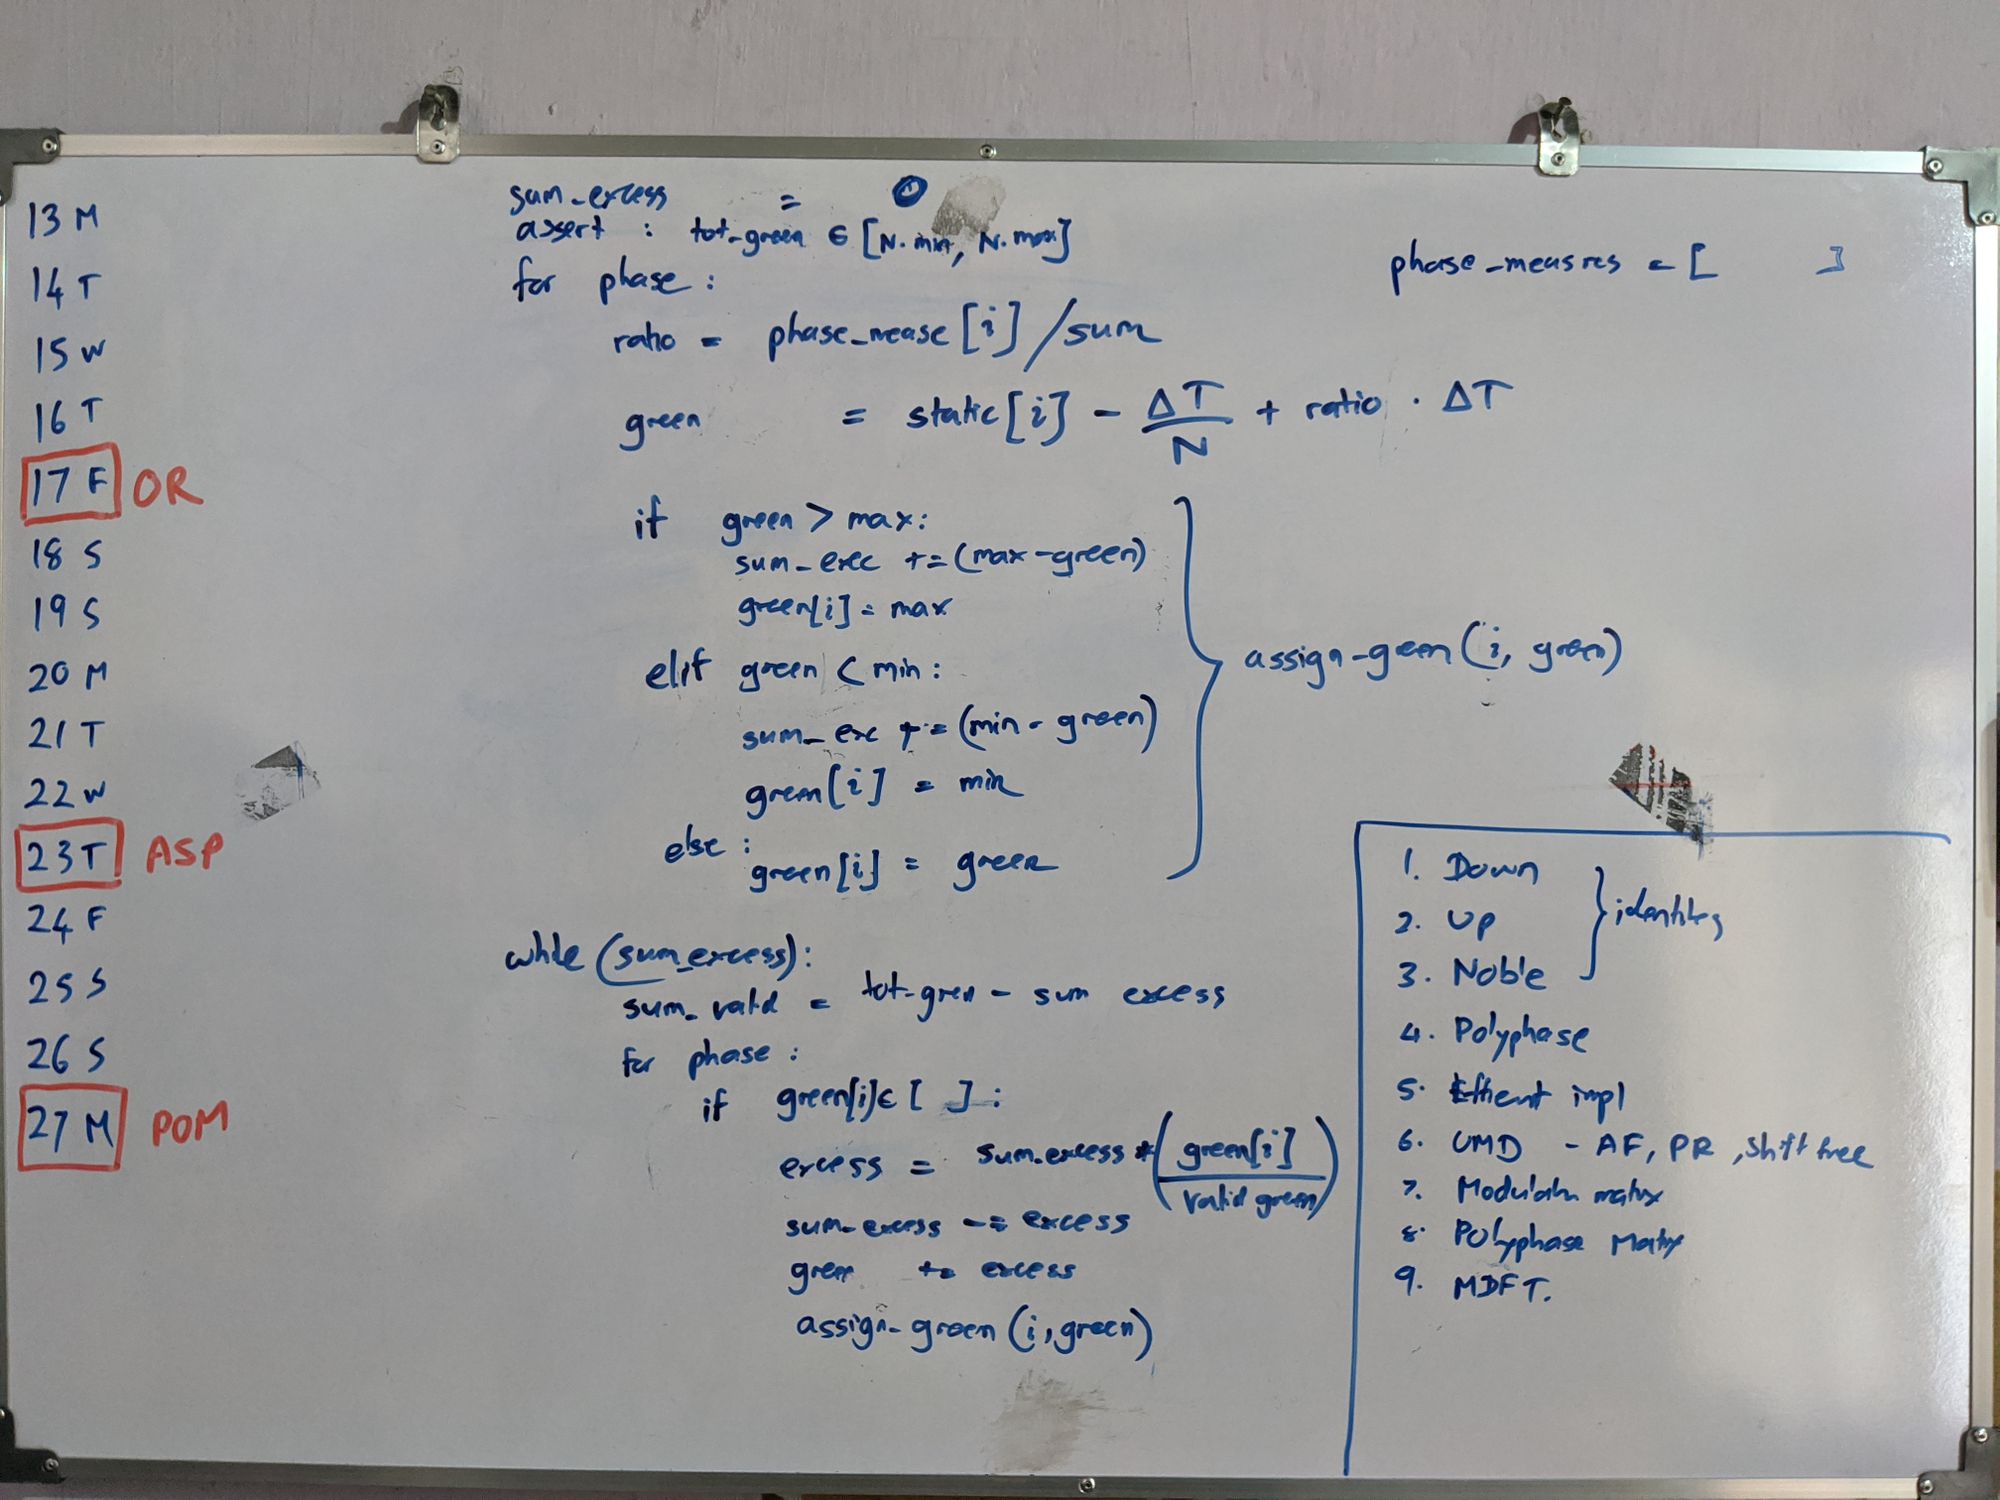 13 M
14 T
15 W
16 T
17 F OR
18 S
19 S
20 M
21 T
22 W
23 T ASP
24 F
25 S
26 S
27 M POM
sum_excess = 0
assert : tot-green ∈ [N.min, N.max]
for phase :
ratio = phase_mease [i] / sum
green = static [i] - ΔT/N + ratio . ΔT
if green > max:
sum_exec += (max - green)
green[i] = max
elif green < min :
sum_exc += (min - green)
green [i] = min
else :
green [i] = green
assign-green (i, green)
while (sum_excess) :
sum_valid = tot-green - sum excess
for phase :
if green[i] ∈ [ ] :
excess = sum.excess * (green[i] / valid green)
sum_excess -= excess
green += excess
assign-green (i, green)
phase_measres = [ ]
1. Down
2. Up
3. Noble
identities
4. Polyphase
5. Efficent impl
6. UMD - AF, PR, shift free
7. matrix
8. Polyphase Matrix
9. MDFT.